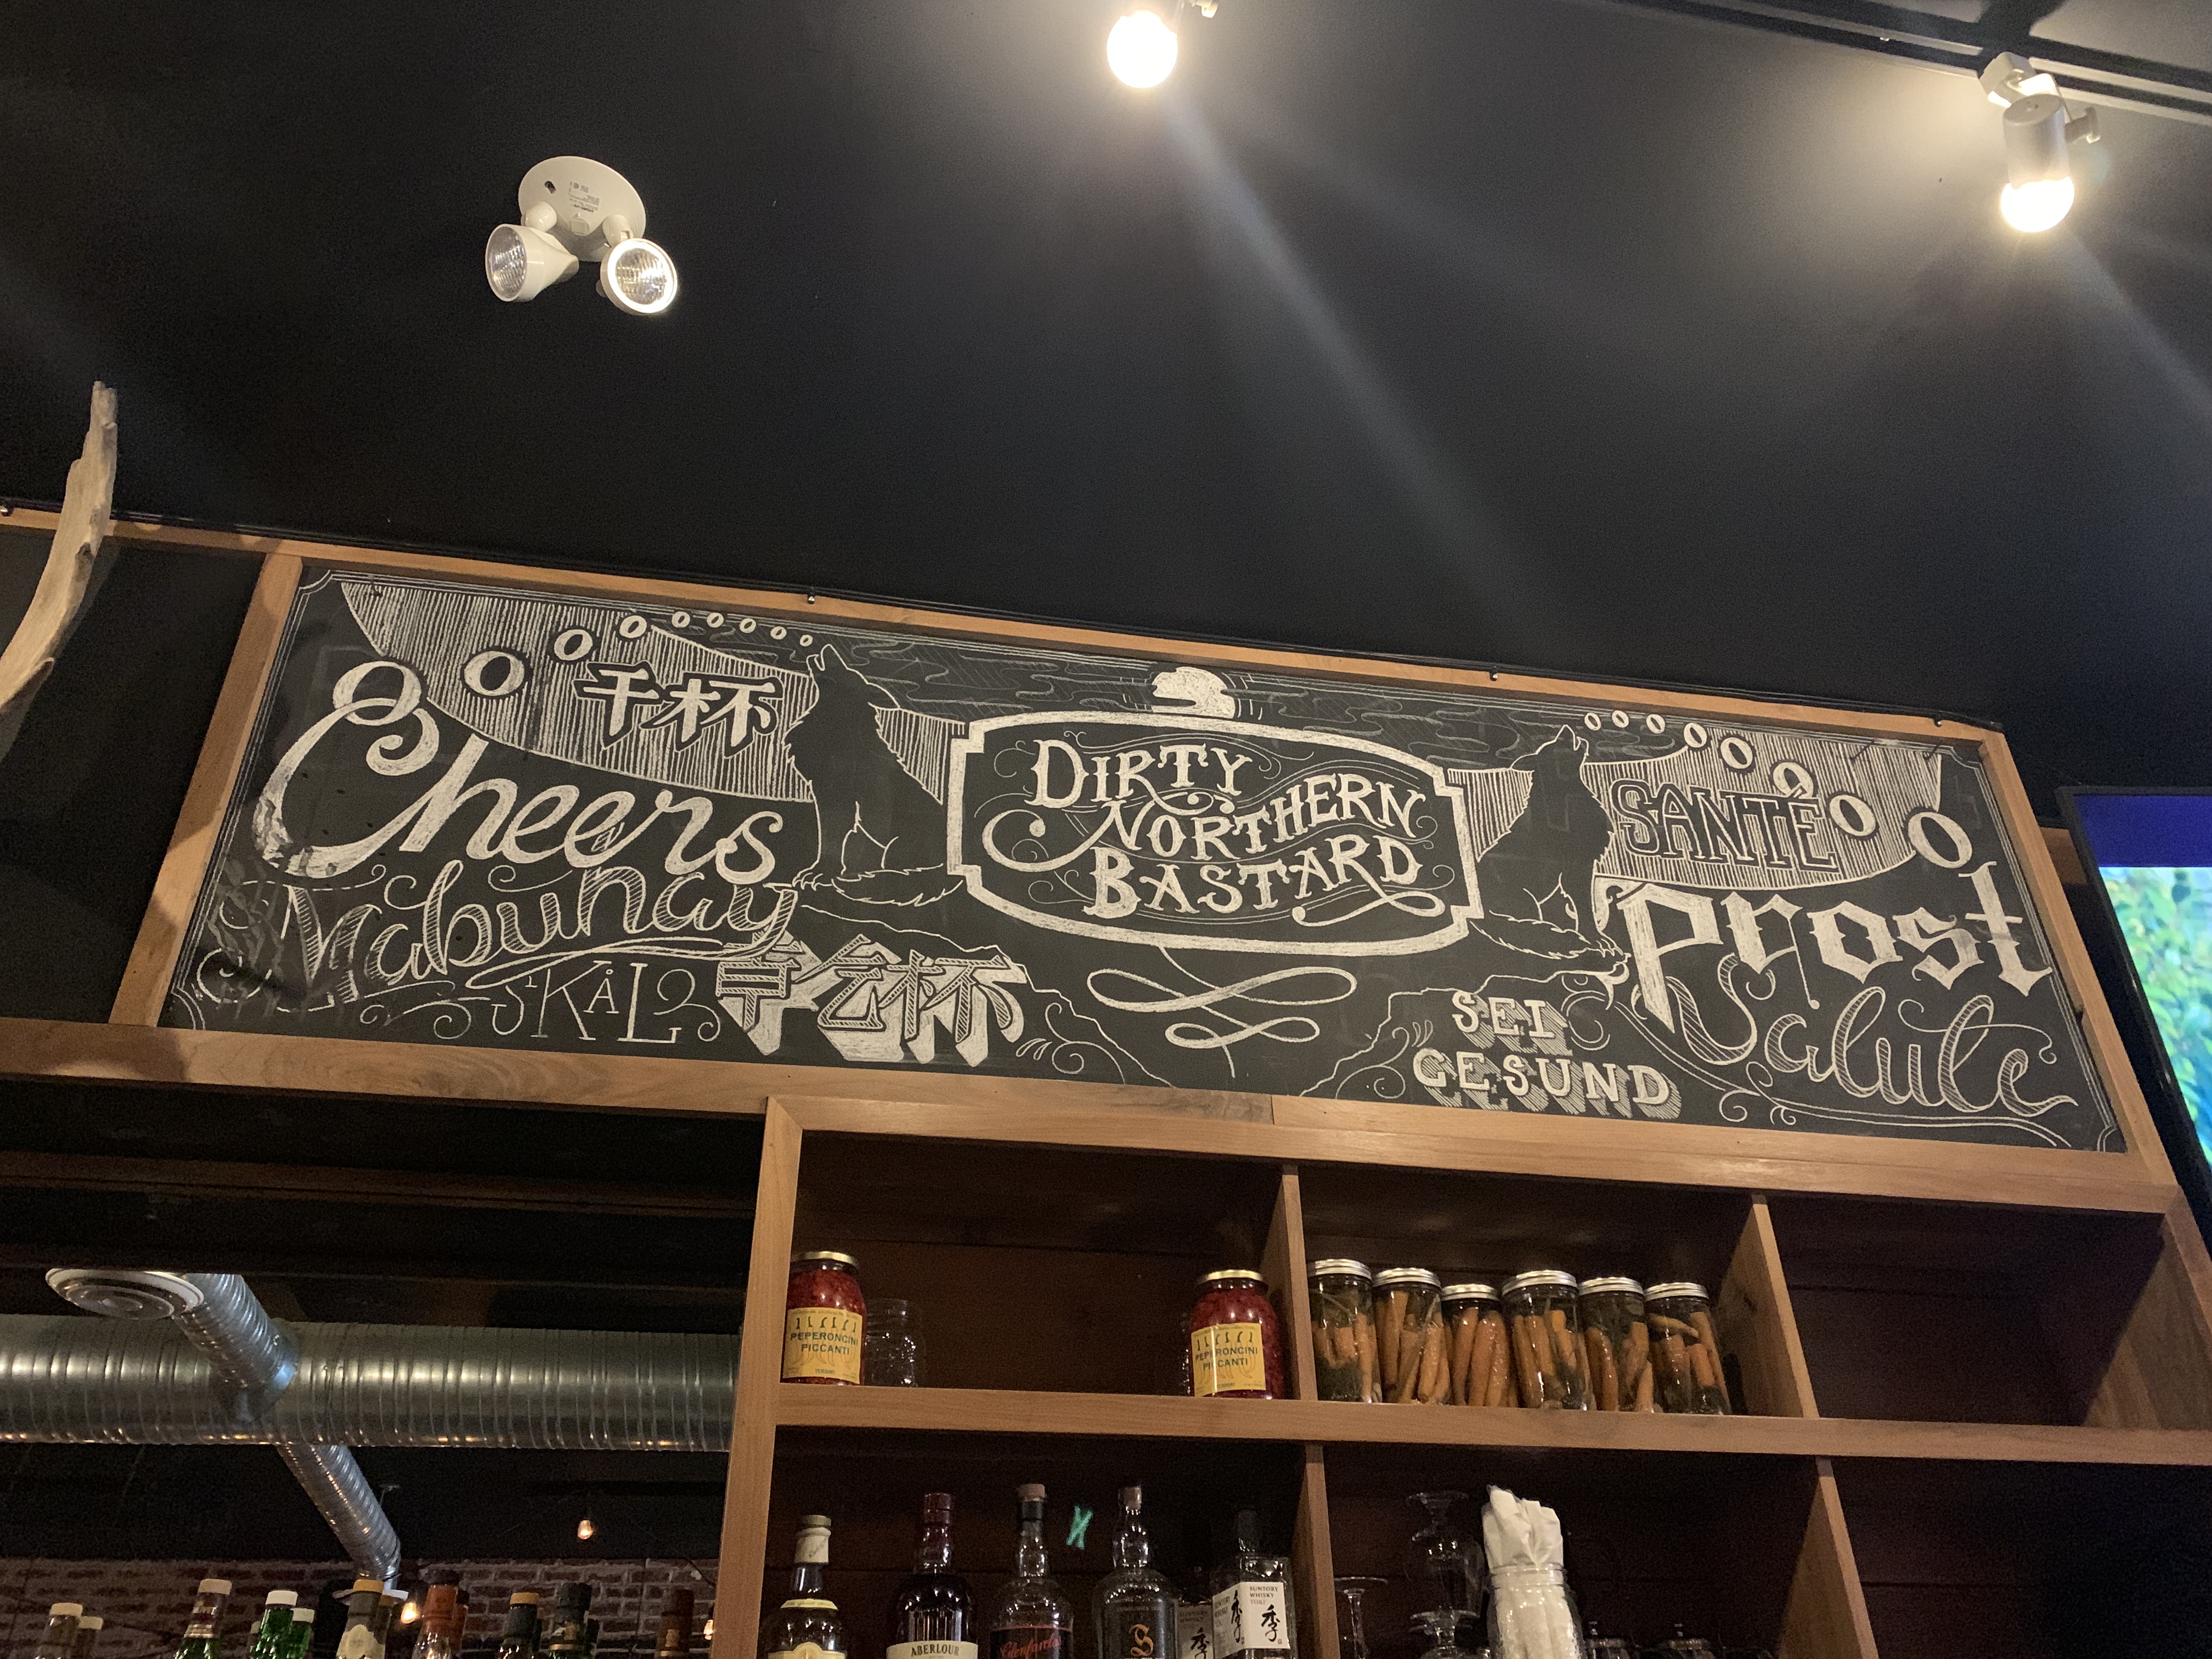 Cheers
干杯
Mabuhay
SKÅL
乾杯
DIRTY
NORTHERN
BASTARD
SANTÉ
Prost
SEI
GESUND
Salute
PEPERONCINI
PICCANTI
PEPERONCINI
PICCANTI
ABERLOUR
S
SUNTORY
WHISKY
季
季